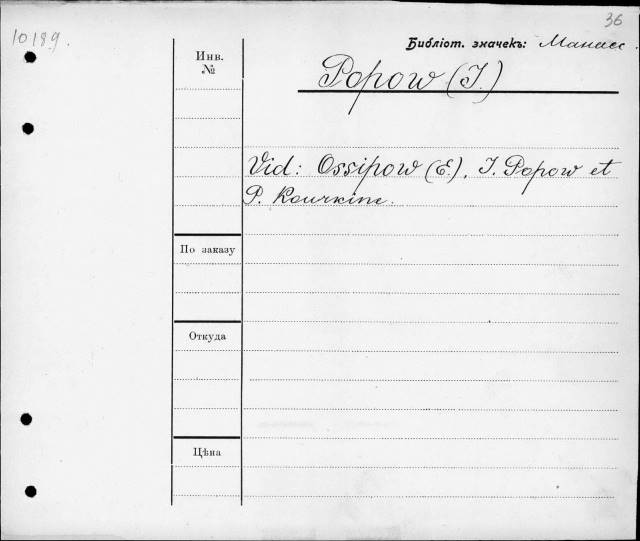 36
10189.
Библіот. значекъ: Манасс.
Инв.
№
Popow (J.)
Vid: Ossipow (E.), J. Popow et
P. Kourkine.
По заказу
Откуда
Цѣна